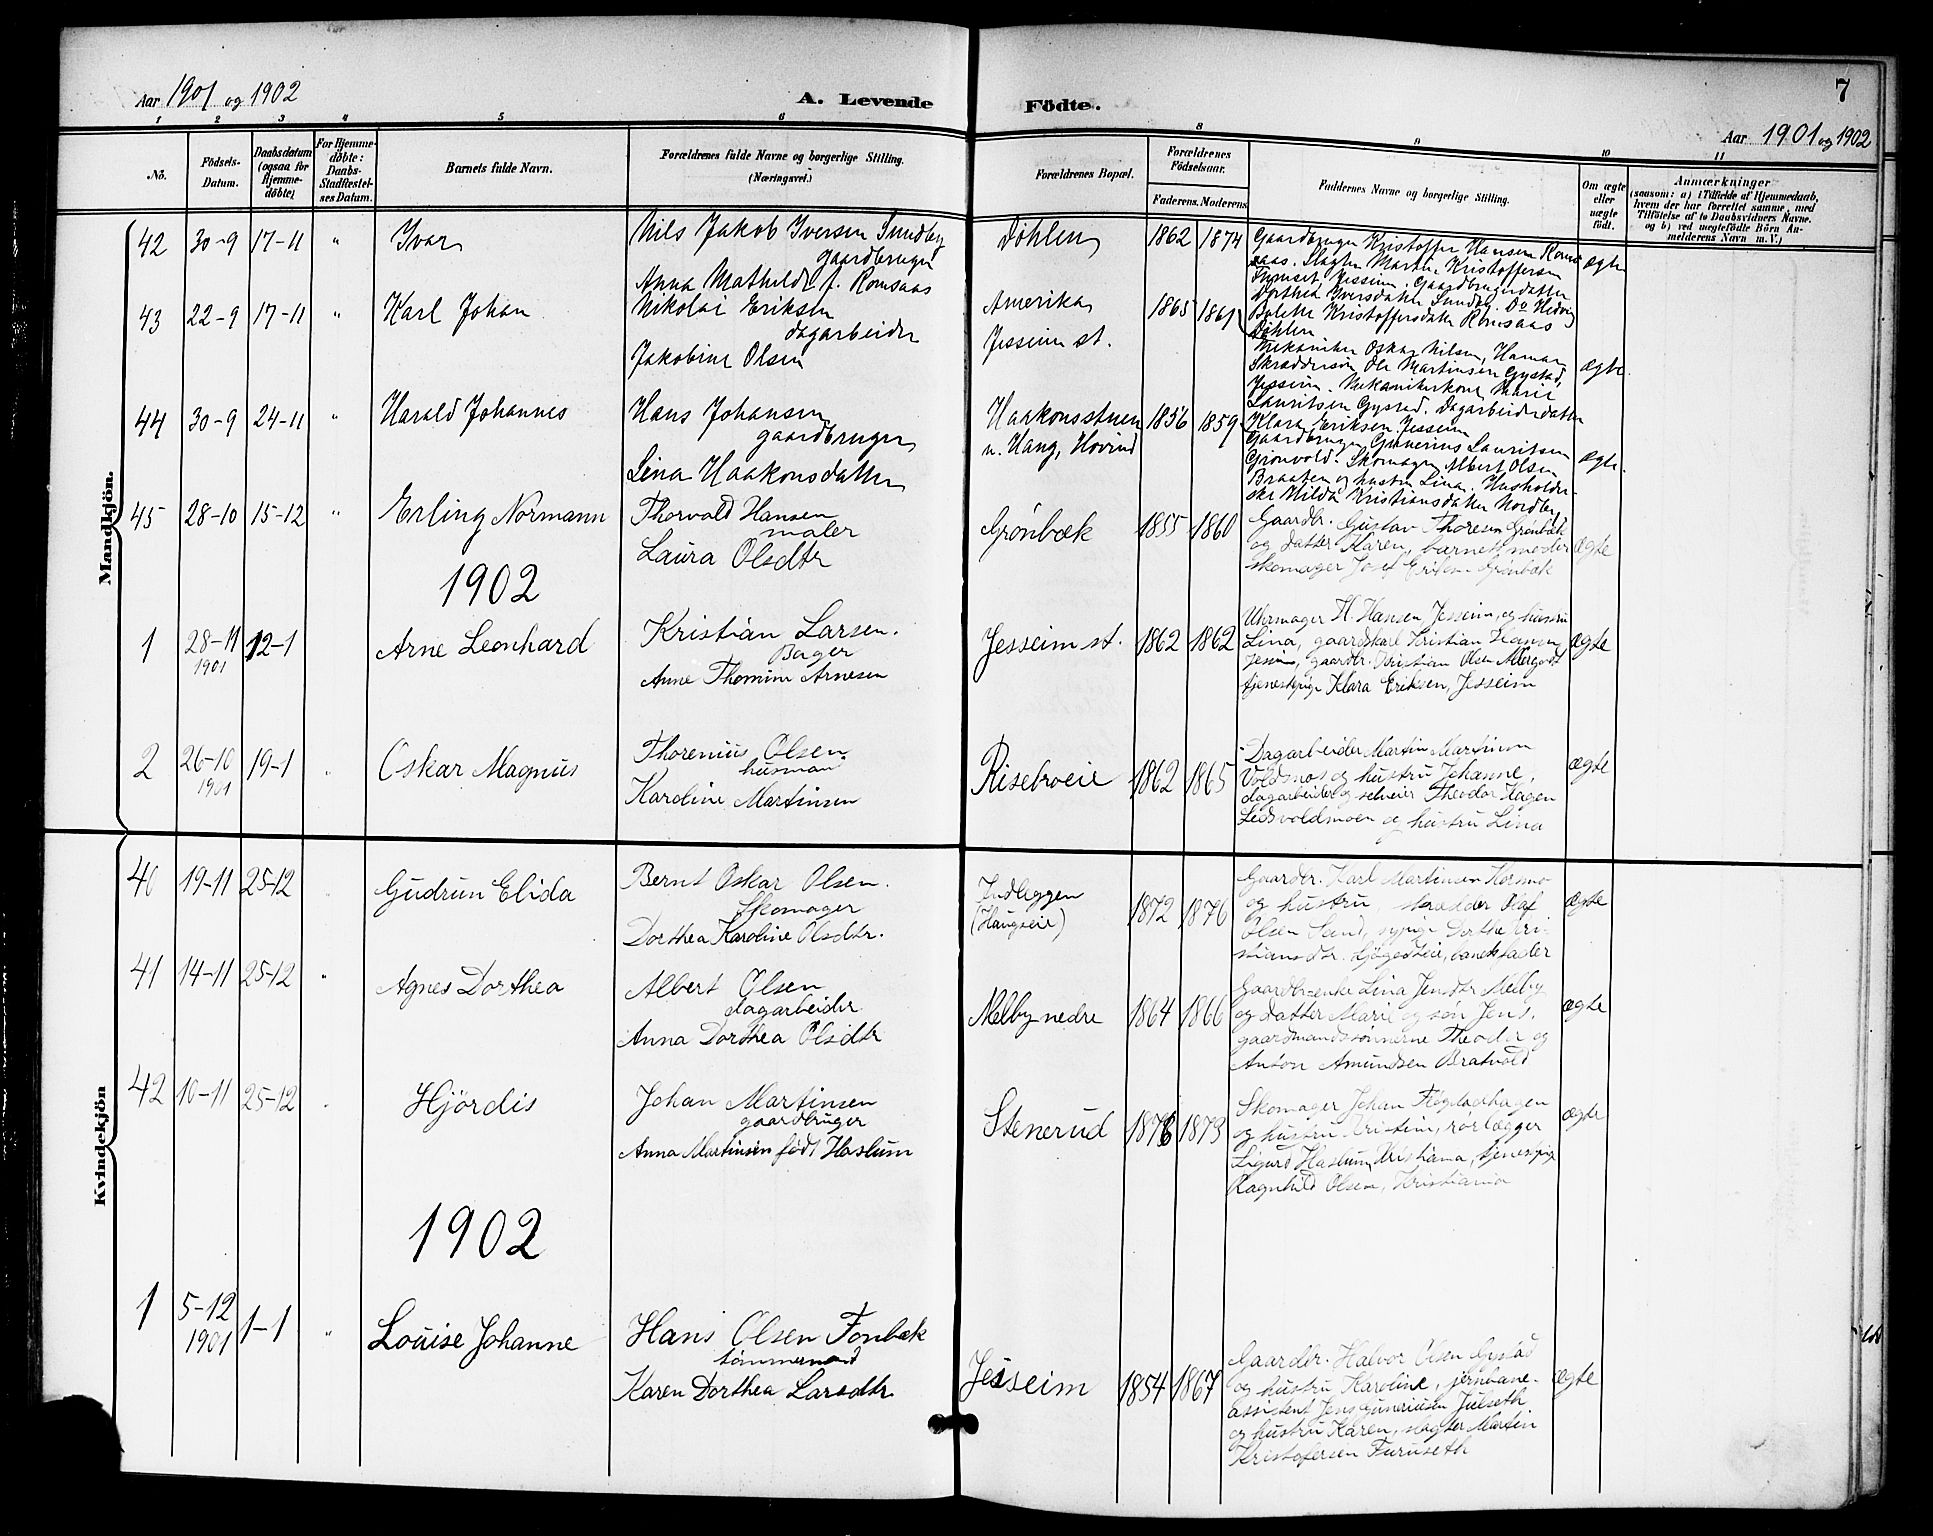 Aar 1901 og 1902
A. Levende Födte.
7
Aar 1901 og 1902
1 2 3 4 5 6 8 9 10 11
No.
Födsels-Datum.
Daabsdatum (ogsaa for Hjemme-döbte)
For Hjemme-döbte: Daabs-Stadfæstel-ses Datum.
Barnets fulde Navn.
Forældrenes fulde Navne og borgerlige Stilling. (Næringsvei.)
Forældrenes Bopæl.
Forældrenes Födselsaar.
Faderens. Moderens.
Faddernes Navne og borgerlige Stilling.
Om ægte eller uægte födt.
Anmærkninger
(saasom: a) i Tilfælde af Hjemmedaab, hvem der har forrettet samme, med Tilföielse af to Daabsvidners Navne. og b) ved uægtefödte Börn An-melderens Navn m. V.)
Mandkjön.
42 30-9 17-11 " Ivar
Nils Jakob Iversen Sundby
gaardbruger
Anna Mathilde f. Romsaas
Döhlen 1862 1874
Gaardbruger Kristoffer Hansen Roms-
saas. Slagter Martin Kristoffersen
Jesseim. Gaardbrugerdatter
Dorthea Iversdatter Sundby. Do Hedvig
Bolette Kristoffersdatter Romsaas
Döhlen
ægte
43 22-9 17-11 " Karl Johan
Nikolai Eriksen
dagarbeider
Jakobine Olsen
Amerika
Jesseim st.
1865 1861
Mekaniker Oskar Nilsen, Hamar
Skræddersön Ole Martinsen Gystad,
Jesseim. Mekanikerkone Marie
Lauritsen Gystad. Dagarbeiderdatter
Klara Eriksen Jesseim
ægte.
44 30-9 24-11 " Harald Johannes
Hans Johansen
gaardbruger
Lina Haakonsdatter
Haakonsstuen
u. Haug, Hovind
1856 1859
Gaardbruger Gunerius Lauritsen
Grönvold. Skomager Albert Olsen
Braaten og hustru Lina. Husholder-
ske Hilda Kristiansdatter Nordby
ægte.
45 28-10 15-12 " Erling Normann
Thorvald Hansen
maler
Laura Olsdtr
Grönbæk 1855 1860
Gaardbr. Gustav Thoresen Grönbæk
og datter Karen, barnets moder
skomager Josef Eriksen Grönbæk
ægte
1902
1 28-11 1901 12-1 Arne Leonhard
Kristian Larsen.
Bager
Anne Thomine Arnesen
Jesseim st. 1862 1862
Uhrmager H. Hansen Jesseim, og hustru
Lina, gaardkarl Kristian Hansen,
gaardbr. Kristian Olsen
tjenestepige Klara Eriksen, Jesseim
ægte
2 26-10 1901 19-1 " Oskar Magnus
Thorenius Olsen
husmand
Karoline Martinsen
Risebroeie 1862 1865
Dagarbeider Martin Martinsen
Voldmos og hustru Johanne,
dagarbeider og selveier Theodor Hagen
Ledsvoldmoen og hustru Lina
ægte
Kvindekjön
40 19-11 25-12 Gudrun Elida
Bernt Oskar Olsen.
Skomager
Dorthea Karoline Olsdtr.
Indleggen
(Haugseie)
1872 1876
Gaardbr. Karl Martinsen Hormo
og hustru, skrædder Olaf
Olsen Sand, sypige Dorthe Kri-
stiansdtr. barnets fader
ægte
41 14-11 25-12 " Agnes Dorthea
Albert Olsen
dagarbeider
Anna Dorthea Olsdtr
Melby nedre 1864 1866
Gaardbr.enke Lina Jensdtr Melby
og datter Marie og sön Jens,
gaardmandssönnerne Theodor og
Anton Amundsen Bratvold
ægte
42 10-11 25-12 Hjördis
Johan Martinsen
gaardbruger
Anna Martinsen födt Haslum
Stenerud 1876 1873
Skomager Johan
og hustru Kristine, rörlægger
Sigurd Haslum, Kristiania, tjenestepige
Ragnhild Olsen, Kristiania
ægte
1902
1 5-12 1901 1-1 " Louise Johanne
Hans Olsen Fonbæk
tömmermand
Karen Dorthea Larsdtr
Jesseim 1854 1867
Gaardbr. Halvor Olsen Gystad
og hustru Karoline, jernbane-
assistent Jens Guneriusen Julseth
og hustru Karen, slagter Martin
Kristofersen Furuseth
ægte